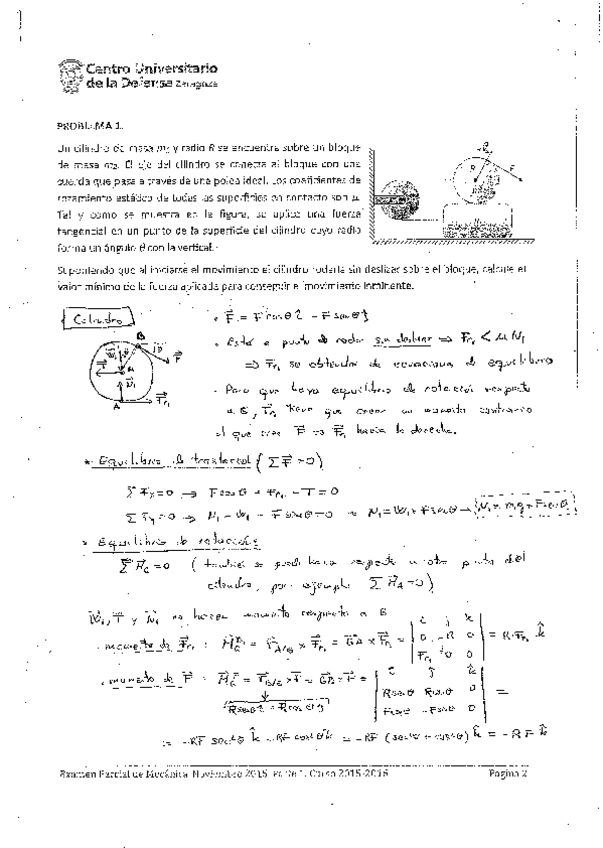 Centro Universitario
de la Defensa Zaragoza
PROBLEMA 1.
Un cilindro de masa m₁ y radio R se encuentra sobre un bloque
de masa m₂. El eje del cilindro se conecta al bloque con una
cuerda que pasa a través de una polea ideal. Los coeficientes de
rozamiento estático de todas las superficies en contacto son μ.
Tal y como se muestra en la figura, se aplica una fuerza
tangencial en un punto de la superficie del cilindro cuyo radio
forma un ángulo θ con la vertical.
R F
Suponiendo que al iniciarse el movimiento el cilindro rodaría sin deslizar sobre el bloque, calcule el
valor mínimo de la fuerza aplicada para conseguir el movimiento inminente.
Cilindro
B
F
A
. F = F cosθ î - F senθ ĵ
. Está a punto de rodar sin deslizar ⇒ Fr₁ < μ N₁
⇒ Fr₁ se obtendrá de ecuaciones de equilibrio
. Para que haya equilibrio de rotación respecto
a G, Fr₁ tiene que crear un momento contrario
al que crea F ⇒ Fr₁ hacia la derecha.
* Equilibrio de traslación (ΣF = 0)
ΣFx = 0 → F cosθ + Fr₁ - T = 0
ΣFy = 0 → N₁ - W₁ - F senθ = 0 → N₁ = W₁ + F senθ → N₁ = m₁g + F senθ
* Equilibrio de rotación
ΣM_G = 0 (también se puede hacer respecto a otro punto del
cilindro, por ejemplo ΣM_A = 0)
W₁, T y N₁ no hacen momento respecto a G
. momento de Fr₁ : M_G = r_A/G × Fr₁ = GA × Fr₁ = | i j k | 0 -R 0 | Fr₁ 0 0 | = R·Fr₁ k
. momento de F : M_G = r_B/G × F = GB × F = | i j k | R senθ R cosθ 0 | F cosθ -F senθ 0 | =
R senθ î + R cosθ ĵ
= -RF sen²θ k - RF cos²θ k = -RF (sen²θ + cos²θ) k = -RF k
Examen Parcial de Mecánica. Noviembre 2015. Parte 1. Curso 2015-2016
Página 2